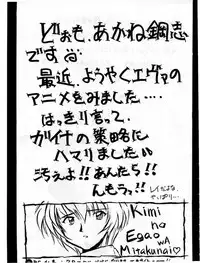 どぉも、あかね鋼志
です
最近、ようやくエヴァの
アニメをみました‥‥
はっきり言って、
ガイナの策略に
ハマりました
汚ゎよ!!あんたら!!
んもうっ!!
Kimi
no
Egao
wA
Mitakunai♡